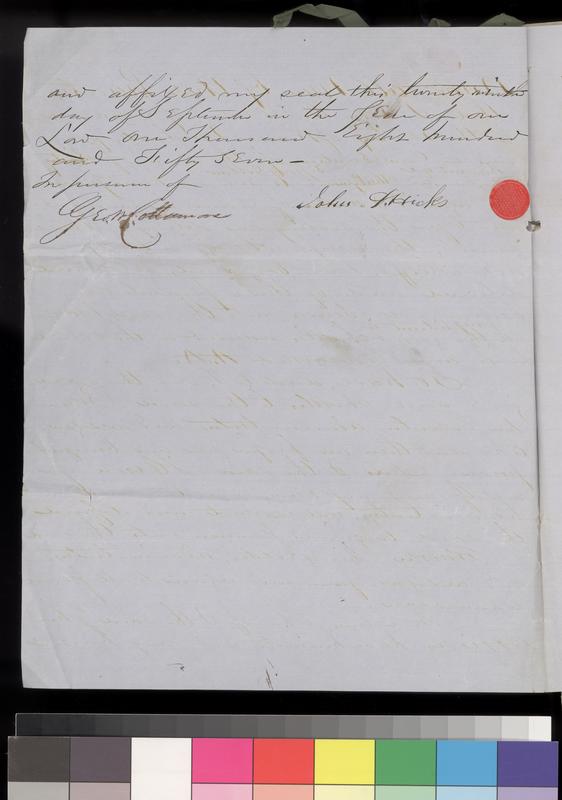 and affixed my seal this twenty ninth
day of September in the Year of our
Lord one Thousand Eight hundred
and Fifty Seven -
In presence of
Geo W. John F. Hicks